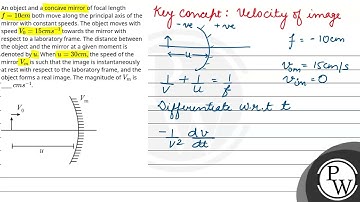 An object and a concave mirror of focal length
f = 10cm both move along the principal axis of the
mirror with constant speeds. The object moves with
speed V₀ = 15cms⁻¹ towards the mirror with
respect to a laboratory frame. The distance between
the object and the mirror at a given moment is
denoted by u. When u = 30cm, the speed of the
mirror Vₘ is such that the image is instantaneously
at rest with respect to the laboratory frame, and the
object forms a real image. The magnitude of Vₘ is
___ cms⁻¹.
V₀
Vₘ
u
Key concept: Velocity of image
-ve +ve
u
f = -10cm
v₀ₘ = 15cm/s
vᵢₘ = 0
1/v + 1/u = 1/f
Differentiate w.r.t t
-1/v² dv/dt
PW